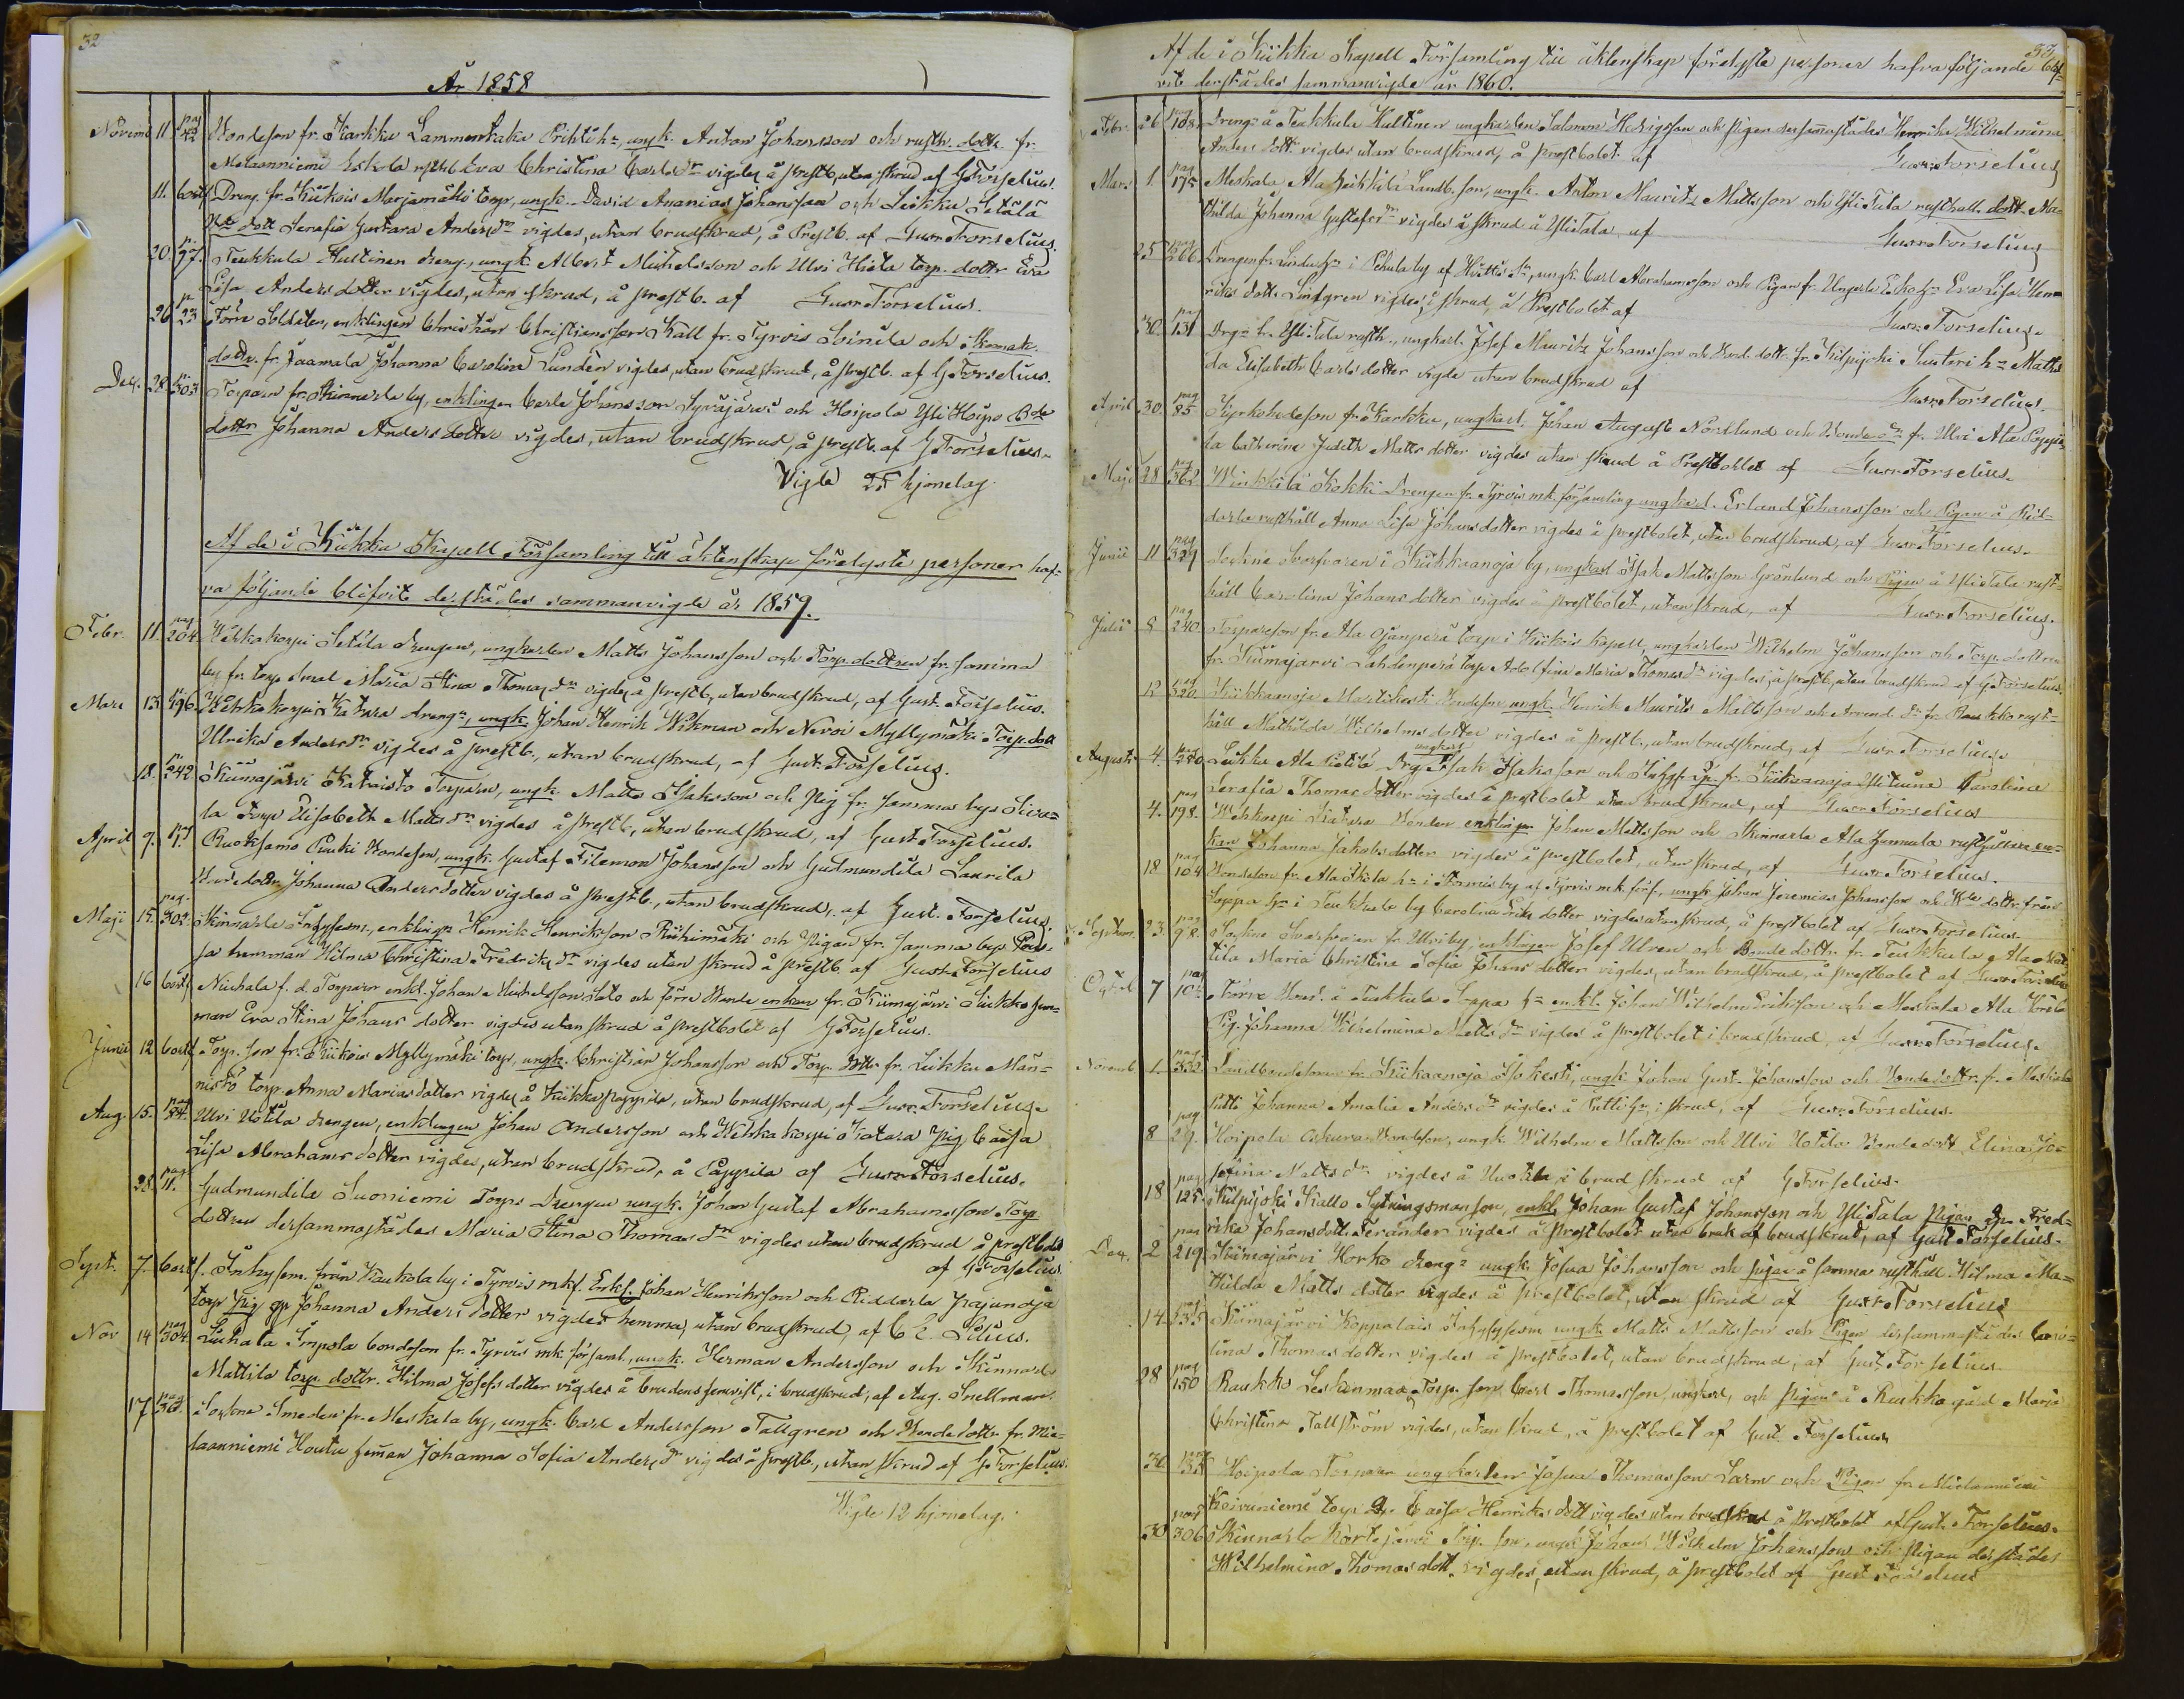 32
År 1858
Novemb 11 pag 42 Bondeson fr. Karkku Lammentaka Prihti hn, ungk. Anton Johansson och rusth. dottr. fr.
Melaanniemi Eskola rsthl Eva Christina Carls dr vigdes å prestb, utan skrud af G Forselius.
11. bortf Dreng fr. Kiikois Marjamäki torp, ungk. David Ananias Johansson och Leikku Setälä
Bde dott Serafia Gustava Anders dr vigdes, utan brudskrud, å Prestb. af Gust. Forselius.
20. p. 97. Teukkula Hultinen dreng, ungk. Albert Michelsson och Ulvi Hieta torp. dottr Eva
Lisa Andersdotter vigdes, utan skrud, å prestb. af Gust. Forselius.
26 p. 23 Förre Soldaten, enklingen Christian Christiansson Kall fr. Tyrvis Soinila och Skomak.
dottr. fr. Jaamala Johanna Carolina Lundén vigdes, utan brudskrud, å prestb. af G Forselius.
Dec. 28. p. 303 Torparn fr. Kinnarla by, enklingen Carl Johansson Syväjärvi och Hoipola Yli Hoipo Bde
dottr Johanna Anders dotter vigdes, utan brudskrud, å prestb. af G Forselius.
Vigde 25 hjonelag.
Af de i Kiikka Kapell Församling till äktenskap förelyste personer haf-
va följande blifvit derstädes sammanvigde år 1859.
Febr. 11. pag 204. Wehkakorpi Setälä drengen, ungkarlen Matts Johansson och Torp. dottren fr. Jamma
by fr. torp Maria Stina Thomas dr vigdes å prestb, utan brudskrud, af Gust. Forselius.
Mars 13 p. 196 Wehkakorpi Katara drengn, ungk. Johan Henrik Wikman och Nevoi Myllymäki Torp. dott
Ulrika Anders dr vigdes å prestb., utan brudskrud, af Gust. Forselius.
18. p. 242 Kiimajärvi Kataisto Torparn, ungk. Matts Isaksson och Pig fr. Jamma by
la torp Elisabeth Matts dr vigdes å prestb, utan brudskrud, af Gust. Forselius.
April 9. Ruoksamo Pouki Bondeson, ungk. Gustaf Filemon Johansson och Gudmundila Laurila
Bondedottr Johanna Andersdotter vigdes å prestb., utan brudskrud, af Gust. Forselius.
Maji 15. pag. 302. Kinnarla Inhyses, enklingn Henrik Henriksson Riihimäki och Pigan fr. Jamma by
hemman Hilma Christina Fredriks dr vigdes utan skrud å prestb. af Gust. Forselius
16 bortf Niuhala f. d. Torparn enkl. Johan Michelsson Salo och förre Bonde enkan fr. Kiimajärvi Kiukko hem-
man Eva Stina Johans dotter vigdes utan skrud å prestbolet af G Forselius.
Junii 12 bortf Torp. son fr. Kiikois Myllymäki torp, ungk. Christian Johansson och Torp dottr. fr. Leikku Män-
nistö torp Anna Mariasdotter vigdes å Kiikka pappila, utan brudskrud, af Gust. Forselius.
Aug. 15. pag 24. Ulvi Uotila drengen, enklingen Johan Andersson och Wehkakorpi Katara Pig Caisa
Lisa Abrahams dotter vigdes, utan brudskrud, å Pappila af Gust. Forselius.
28. pag 11. Gudmundila Suoniemi Torps drengen ungk. Johan Gustaf Abrahamsson Torp
dottren dersammastädes Maria Stina Thomas dr vigdes utan brudskrud å prestbolet
af G Forselius.
Sept. 7. bortf. Inhyses. från Kaukola by i Tyrvis mkf. Enkl. Johan Henriksson och Riddarla Pajunoja
torp Pig Johanna Anders dotter vigdes hemma, utan brudskrud, af C E Lilius.
Nov 14 pag 304. Liuhala Impola bondeson fr. Tyrvis mk. församl., ungk. Herman Andersson och Kinnarla
Mattila torp. dottr. Hilma Josefs dotter vigdes å brudens hemvist, i brudskrud, af Aug. Snellman.
17 pag 36. Sockne Smeden fr. Meskala by, ungk. Carl Andersson Tallgren och Bondedottr fr. Mie-
laanniemi Houtu heman Johanna Sofia Anders dr vigdes å prestb., utan skrud af G Forselius.
Vigde 12 hjonelag.
33
Af de i Kiikka Kapell Församling till äktenskap förelyste personer hafva följande blif-
vit derstädes sammanvigde år 1860.
Febr. 26 pag 108. Dreng å Teukkula Hultinen ungkarlen Salomon Hedrigsson och Pigan dersammastädes Henrika Wilhelmina
Anders dottr vigdes utan brudskrud, å prestbolet af Gust. Forselius
Mars 1. pag 175 Meskala Ala Heikkilä Landb. son, ungk. Anton Mauritz Mattsson och Yli Tala rusthåll. dottr. Ma-
thilda Johanna Gustafs dr vigdes å skrud å Ylistala, af Gust. Forselius
25 pag 266. Drengen fr. hn i Pehula by af Huittis sn, ungk. Carl Abrahamsson och Pigan fr. Ungerla hn Eva Lisa Hen-
riks dottr. Lindgren vigdes, i skrud, å Prestbolet af Gust. Forselius.
30. pag 131 Drg fr. Yli Tala rusth., ungkarl. Josef Mauritz Johansson och Bond. dottr. fr. Kilpijoki Santeri hn Mathil
da Elisabeth Carls dotter vigde utan brudskrud af Gust. Forselius.
April 30. pag 85 Kyrkohedeson fr. Karkku, ungkarl. Johan August Nordlund och Bonde dr fr. Ulvi Ala Pappi
la Catharina Judith Matts dotter vigdes utan skrud å Prestbolet af Gust. Forselius.
Maji 28 pag 362 Winkkilä Kokki drengen fr. Tyrvis mk. församling ungkarl. Erland Johansson och Pigan å Rid-
darla rusthåll Anna Lisa Johans dotter vigdes å prestbolet, utan brudskrud, af Gust. Forselius.
Junii 11 pag 329 Sockne Svarfvaren i Kiikkaanoja by, ungkarl Isak Mattsson Grönlund och Pigan å Ylistala rust-
håll Carolina Johans dotter vigdes å prestbolet, utan skrud, af Gust. Forselius.
Julii 8 pag 240 Torpareson fr. Ala Ojanperä torp i Kiikois Kapell, ungkarlen Wilhelm Johansson och Torp. dottren
fr. Kiimajärvi Lahdenperä torp Adolfina Maria Thomas dr vigdes, å prestb, utan brudskrud af G Forselius.
12 pag 320. Kiikkaanoja Martikesti Bondeson ungk. Henrik Maurits Mattsson och Arrend. dr fr. Raukko rust-
håll Mathilda Wilhelms dotter vigdes å prestb., utan brudskrud, af Gust. Forselius.
Augusti 4. pag 250 Leikku Ala Pietilä Drg ungkarl Isak Isaksson och fr. Kiikkaanoja Ylituina Carolina
Serafia Thomas dotter vigdes å prestbolet utan brudskrud, af Gust. Forselius
4. pag 198. Wehkorpi Katara Bonden enklingen Johan Mattsson och Kinnarla Ala Jummala rusthållare en-
kan Johanna Jakobs dotter vigdes å prestbolet, utan skrud, af Gust Forselius.
18 pag 104 Bondeson fr. Ala hn i Stormis by af Tyrvis mk. förs., ungk. Johan Jeremias Johansson och Bde dottr från
Soppa hn i Teukkula by Carolina Eriks dotter vigdes utan skrud, å prestbolet af Gust. Forselius.
Septem. 23. pag 98. Sockne Svarfvaren fr. Ulvi by, enklingen Josef Ulvén och Bonde dottr. fr. Teukkula Ala
tila Maria Christina Sofia Johans dotter vigdes, utan brudskrud, å prestbolet af Gust. Forselius
Octob 7 pag 102 Förre Bond. å Teukkula Soppa hn enkl. Johan Wilhelm Eriksson och Meskala Ala
Pig. Johanna Wilhelmina Matts dr vigdes å prestbolet i brudskrud, af Gust. Forselius.
Novemb 1. pag 332 Landbondeson fr. Kiikkaanoja Isokesti, ungk Johan Gust. Johansson och Bondedottr. fr. Meskala
Putti Johanna Amalia Anders dr vigdes å Putti hn, i skrud, af Gust. Forselius.
8 pag 29. Hoipola Bondeson, ungk Wilhelm Mattsson och Ulvi Uotila Bondedott Elina Jo-
sefina Matts dr vigdes å Uotila, i brudskrud af G Forselius.
18 pag 125 Kilpijoki Kallo Sytningsmanson, enkl. Johan Gustaf Johansson och Ylistala Pigan Fred-
rika Johansdott. Terander vigdes å prestbolet utan brudskrud, af Gust Forselius.
Dec. 2 pag 219 Kiimajärvi Horko dreng ungk. Josua Johansson och pigan å samma rusthåll Hilma Ma-
thilda Matts dotter vigdes å prestbolet, utan skrud af Gust. Forselius
14 pag 235 Kiimajärvi Koppalais Inhyses ungk. Matts Mattsson och Pigan dersammastädes Caro-
lina Thomasdotter vigdes å prestbolet, utan brudskrud, af Gust. Forselius.
28 pag 150 Raukko Leskenmaa Torp. son Carl Thomasson, ungkarl, och Pigan å Raukko gård Maria
Christina Fallström vigdes, utan skrud, å prestbolet af Gust. Forselius
30 pag 38 Hoipola Torparn ungkarlen Josua Thomasson Sarm och Pigan fr. Mielaaniemi
Koivuniemi torp Caisa Henriks dott vigdes utan brudskrud å Prestbolet af Gust. Forselius.
30 pag 306 Kinnarla Torp. son, ungk. Johan Wilhelm Johansson och Pigan derstädes
Wilhelmina Thomas dott. vigdes, utan skrud, å prestbolet af Gust. Forselius